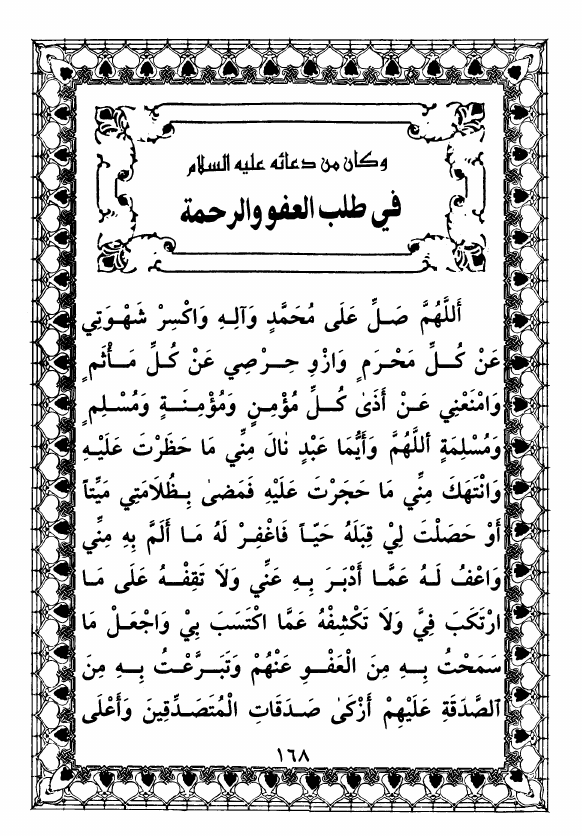 وكان من دعائه عليه السلام
في طلب العفو والرحمة
أَللَّهُمَّ صَلِّ عَلَى مُحَمَّدٍ وَآلِهِ وَاكْسِرْ شَهْوَتِي
عَنْ كُلِّ مَحْرَمٍ وَازْوِ حِرْصِي عَنْ كُلِّ مَأْثَمٍ
وَامْنَعْنِي عَنْ أَذَىٰ كُلِّ مُؤْمِنٍ وَمُؤْمِنَةٍ وَمُسْلِمٍ
وَمُسْلِمَةٍ أَللَّهُمَّ وَأَيُّمَا عَبْدٍ نالَ مِنِّي مَا حَظَرْتَ عَلَيْهِ
وَانْتَهَكَ مِنِّي مَا حَجَرْتَ عَلَيْهِ فَمَضىٰ بِظُلَامَتِي مَيِّتاً
أَوْ حَصَلْتَ لِيْ قِبَلَهُ حَيّاً فَاغْفِرْ لَهُ مَا أَلَمَّ بِهِ مِنِّي
وَاعْفُ لَهُ عَمَّا أَدْبَرَ بِهِ عَنِّي وَلَا تَقِفْهُ عَلَى مَا
ارْتَكَبَ فِيَّ وَلَا تَكْشِفْهُ عَمَّا اكْتَسَبَ بِيْ وَاجْعَلْ مَا
سَمَحْتُ بِهِ مِنَ الْعَفْوِ عَنْهُمْ وَتَبَرَّعْتُ بِهِ مِنَ
الصَّدَقَةِ عَلَيْهِمْ أَزْكَىٰ صَدَقَاتِ الْمُتَصَدِّقِينَ وَأَعْلَى
١٦٨